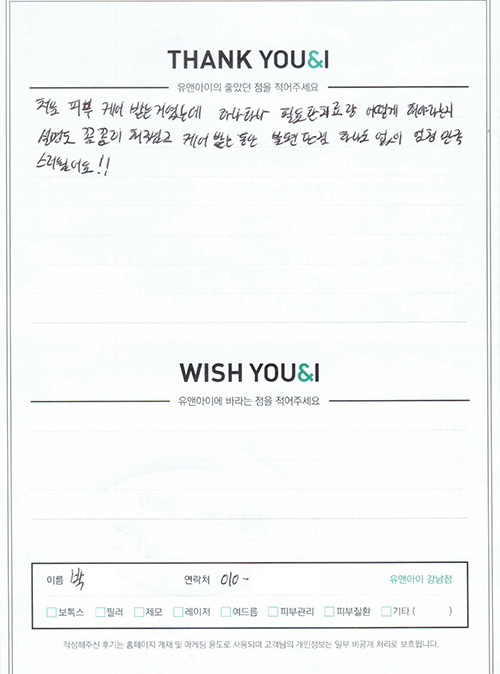 THANK YOU&I
유앤아이의 좋았던 점을 적어주세요
처음 피부 케어 받는거였는데 하나하나 필요한치료랑 어떻게 해야하는지
설명도 꼼꼼히 해주셨고 케어 받는 동안 불편한점 하나도 없이 엄청 만족
스러웠어요!!
WISH YOU&I
유앤아이에 바라는 점을 적어주세요
이름 박 연락처 010 - 유앤아이 강남점
보톡스 필러 제모 레이저 여드름 피부관리 피부질환 기타 ( )
작성해주신 후기는 홈페이지 게재 및 마케팅 용도로 사용되며 고객님의 개인정보는 일부 비공개 처리로 보호됩니다.